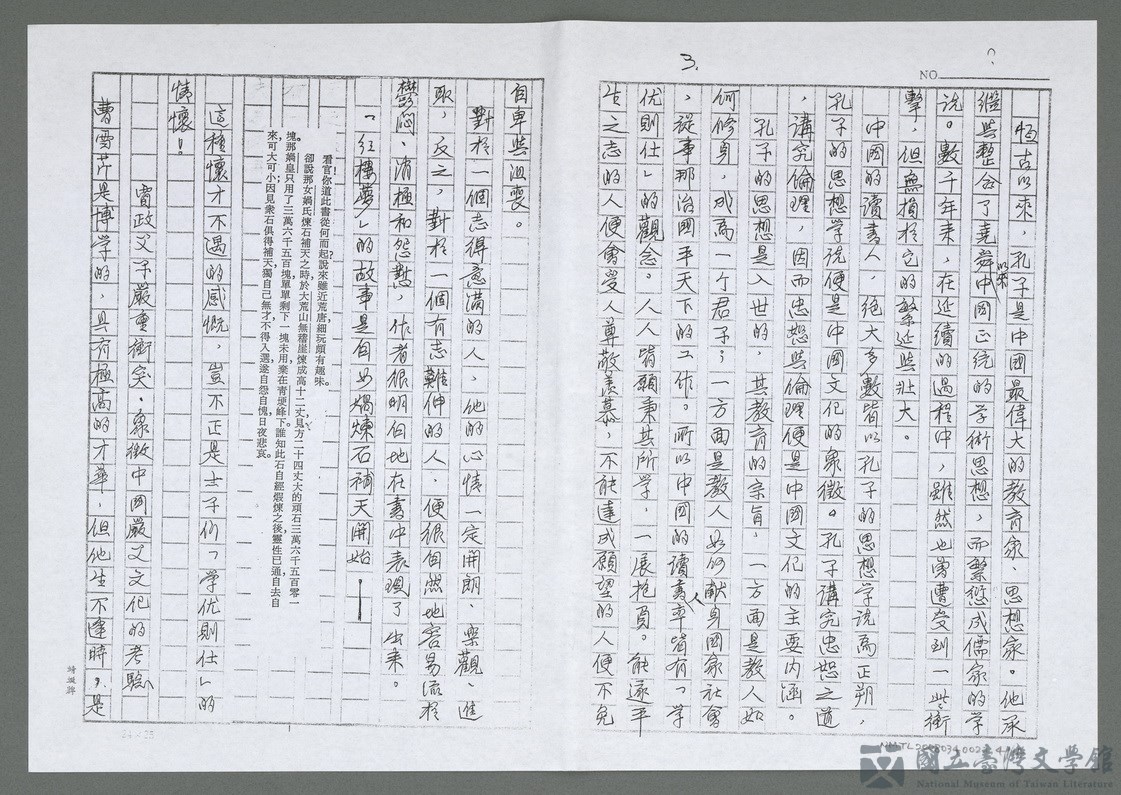 ?
3.
NO.
恒古以來，孔子是中國最偉大的教育家、思想家。他承
繼些整合了堯舜以來中國正統的学術思想，而繁悠成儒家的学
説。數千年來，在延續的過程中，雖然也曾遭受到一些衝
擊，但無損於它的繁延與壯大。
中國的讀書人，絕大多數皆以孔子的思想学説為正朔，
孔子的思想学説便是中國文化的象徵。孔子講究忠恕之道
，講究倫理，因而忠恕與倫理便是中國文化的主要内涵。
孔子的思想是入世的，其教育的宗旨，一方面是教人如
何修身，成為一个君子；一方面是教人如何献身國家社會
，從事那治國平天下的工作。所以中國的讀書人率皆有「学
优則仕」的觀念。人人皆願秉其所学，一展抱負。能遂平
生之志的人便會受人尊敬羨慕，不能達成願望的人便不免
自卑與沮喪。
對於一個志得意滿的人，他的心情一定開朗、樂觀、進
取，反之，對於一個有志難伸的人，便很自然地容易流於
鬱悶、消極和怨懟，作者很明白地在書中表現了出來。
「红樓夢」的故事是自女媧煉石補天開始──
看官你道此書從何而起？說來雖近荒唐，細玩頗有趣味。
卻說那女媧氏煉石補天之時，於大荒山無稽崖煉成高十二丈見方二十四丈大的頑石三萬六千五百零一
塊。那媧皇只用了三萬六千五百塊，單單剩下一塊未用，棄在青埂峰下。誰知此石自經煅煉之後，靈性已通，自去自
來，可大可小；因見衆石俱得補天，獨自己無才，不得入選，遂自怨自愧，日夜悲哀。
這種懷才不遇的感慨，豈不正是士子们「学优則仕」的
情懷！
賈政父子嚴重衝突，象徵中國嚴父文化的考驗
曹雪芹是博学的，具有極高的才華，但他生不逢時，是
國立臺灣文学館
National Museum of Taiwan Literature